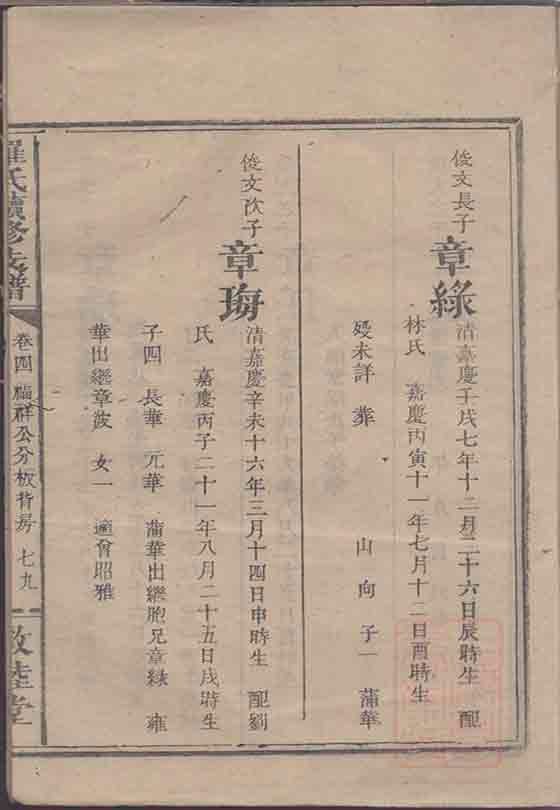 俊文長子
章綠
清嘉慶壬戌七年十二月二十六日辰時生 配
林氏 嘉慶丙寅十一年七月十二日酉時生
歿未詳 葬 山 向 子一 蒲華
俊文次子
章珻
清嘉慶辛未十六年三月十四日申時生 配劉
氏 嘉慶丙子二十一年八月二十五日戌時生
子四 長華 元華 蒲華出繼胞兄章綠 雍
華出繼章波 女一 適曾昭雅
羅氏續修支譜
卷四 福祥公分板背房 七九
敦睦堂